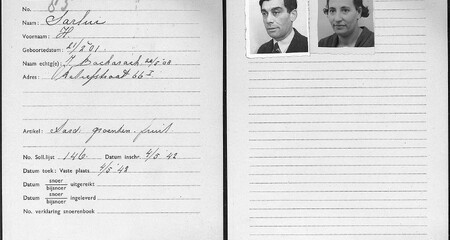 No.
Naam: Sarlui
Voornaam: H.
Geboortedatum: 21/5 '01
Naam echtg(e) J. Bacharach
Adres: 66 I
Artikel: Aard. groenten. fruit
No. Soll.lijst 146 Datum inschr. 4/5 42
Datum toek: Vaste plaats 4/5 '43
Datum snoer bijsnoer uitgereikt
Datum snoer bijsnoer ingeleverd
No. verklaring snoerenboek